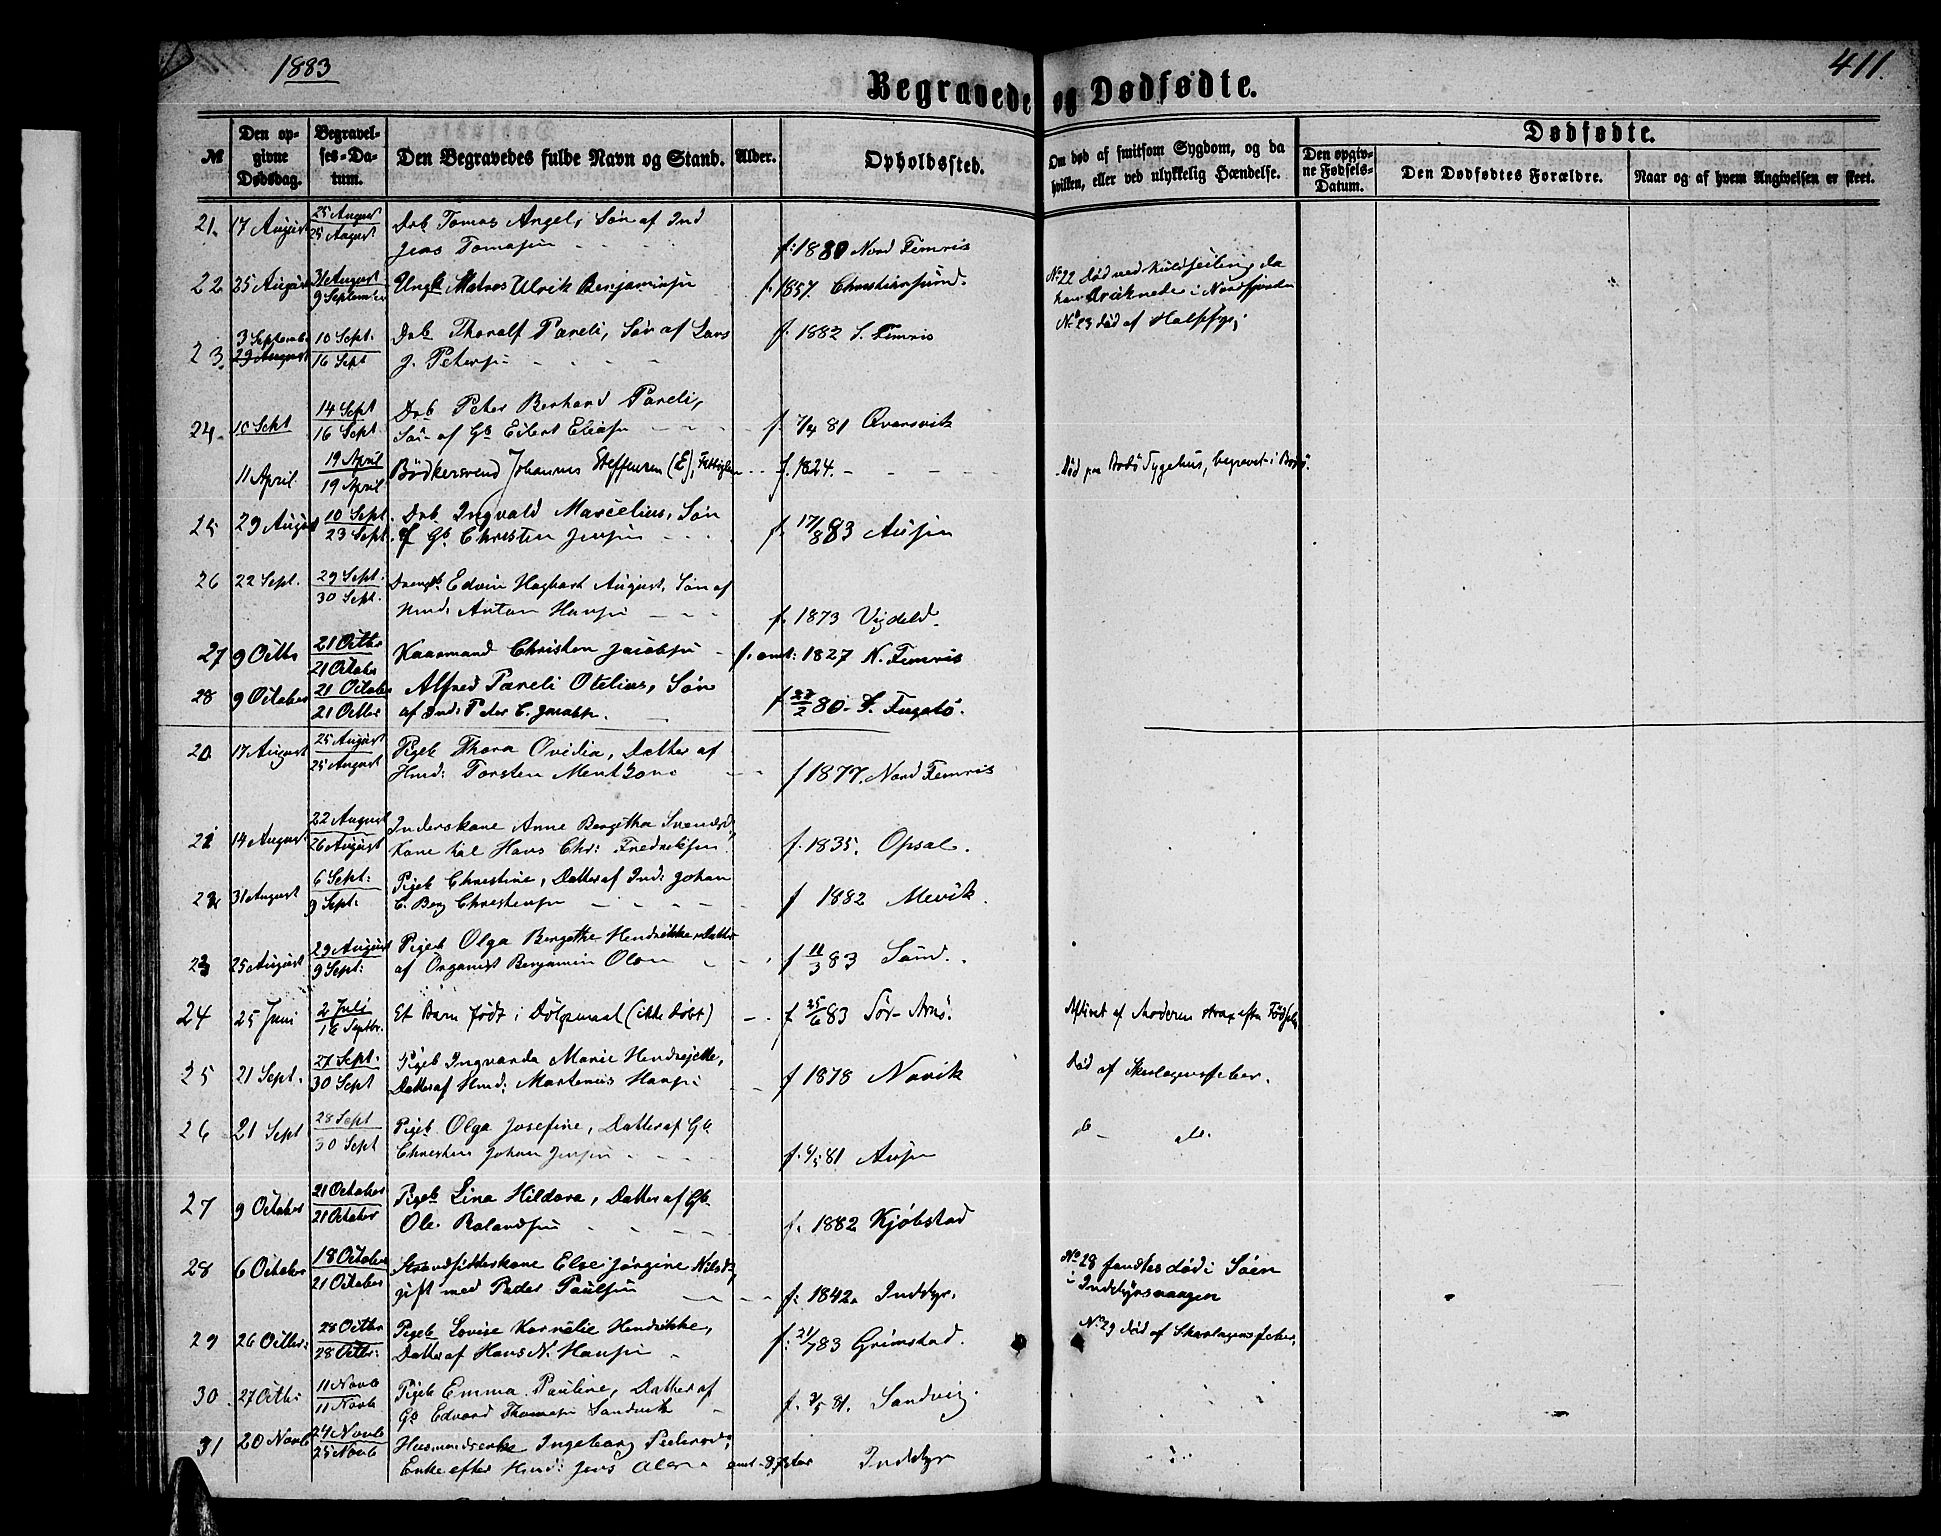 1883
411.
Begravede og Dødfødte.
№
Den opgivne Dødsdag.
Begravelses-Datum.
Den Begravedes fulde Navn og Stand.
Alder.
Opholdssted.
Om død af smitsom Sygdom, og da hvilken, eller ved ulykkelig Hændelse.
Dødfødte.
Den opgivne Fødsels-Datum.
Den Dødfødtes Forældre.
Naar og af hvem Angivelsen er skeet.
21. 17 August 25 August Drb Tomas Angel, Søn af Ind
25 August Jens Tomasen f: 1880 Nord Femris
22 25 August 31 August Ungk Matros Ulrik Benjaminsen f. 1857. Christiansund. No 22 død ved Kuldseiling da
9 September han druknede i Nordfjorden
3 Septembr 10 Sept: Drb Thoralf Pareli, Søn af Lars f. 1882 S. Femris No 23 død af Halssyge
23. 29 August 16 Sept J. Petersen
24. 10 Sept 14 Sept Drb Peter Berhard Pareli,
16 Sept. Søn af Gb Eilert Eliasen f. 7/4 81 Qvarsvik
11 April 19 April Bødkersvend Johannes Steffensen (E), Fattiglem f. 1824. Død paa Bodø Sygehus, begravet i Bodø.
19 April
25 29 August 10 Sept. Drb Ingvald Marcelius, Søn
23 Sept. af Gb. Christen Jensen f. 17/8 83 Ausen
26 22 Sept. 29 Sept. Drengb. Edvin Hagbart August, Søn af
30 Sept. Hmd: Anton Hansen f. 1873 Vigdel.
27 9 Octbr 21 Octbr Kaarmand Christen Jacobsen f. omt: 1827 N. Femris
21 October
28 9 October 21 October Alfred Pareli Otelius, Søn
21 Octbr af Ind: Peter C. Jacobsn. f 27/2 80 S. Fugelø.
20 17 August 25 August Pigeb Thora Ovidia, Datter af
25 August Hmd: Torsten Mentzoni f 1877. Nord Femris
21 14 August 22 August Inderskone Anne Bergitha Svendsd,
26 August Kone til Hans Chr: Fredriksen f. 1835. Opsal.
22 31 August 6 Sept: Pigeb Christine, Datter af Ind: Johan
9 Sept: C. Berg Christensen f 1882 Mevik.
23 25 August 29 August Pigeb Olga Bergethe Hendrikke, Datter
9 Sept: af Organist Benjamin Olsen f 11/3 83 Sund.
24 25 Juni 2 Juli Et Barn født i Dølgsmaal (ikke døbt) f 25/6 83 Sør-Arnø. Aflivet af Moderen strax efter Fødselen
16 Septbr.
25 21 Sept. 27 Sept: Pigeb Ingvarda Marie Hendrejette,
30 Sept Datter af Hmd: Martenius Hansen f 1878 Novik Død af Skarlagensfeber.
26 21 Sept 28 Sept Pigeb. Olga Josefine, Datter af Gb. do do.
30 Sept Christen Johan Jensen f. 4/5 81 Ausen
27 9 October 21 October Pigeb Lina Hildora, Datter af Gb.
21 October Ole Rolandsen f. 1882 Kjøbstad
28 6 October 18 October Strandsidderskone Else Jørgine Nilsd, No 28 fandtes død i Søen
21 October gift med Peder Paulsen f: 1842. Inddyr. i Inddyrsvaagen
29 26 Octbr: 28 Octbr Pigeb Lovise Kornelie Hendrikke, No 29 død af Skarlagensfeber.
28 Octbr: Datter af Hans N. Hansen f. 21/7 83 Grimstad.
30. 27 Octbr 11 Novb Pigeb Emma Pauline, Datter af
11 Novb Gb Edvard Thomasen Sandvik f. 3/5 81. Sandvig.
31 20 Novb 24 Novb Husmandsenke Ingeborg Pedersd,
25 Novb Enke efter Hmd: Jens Olsen omt. 87 Aar Inddyr